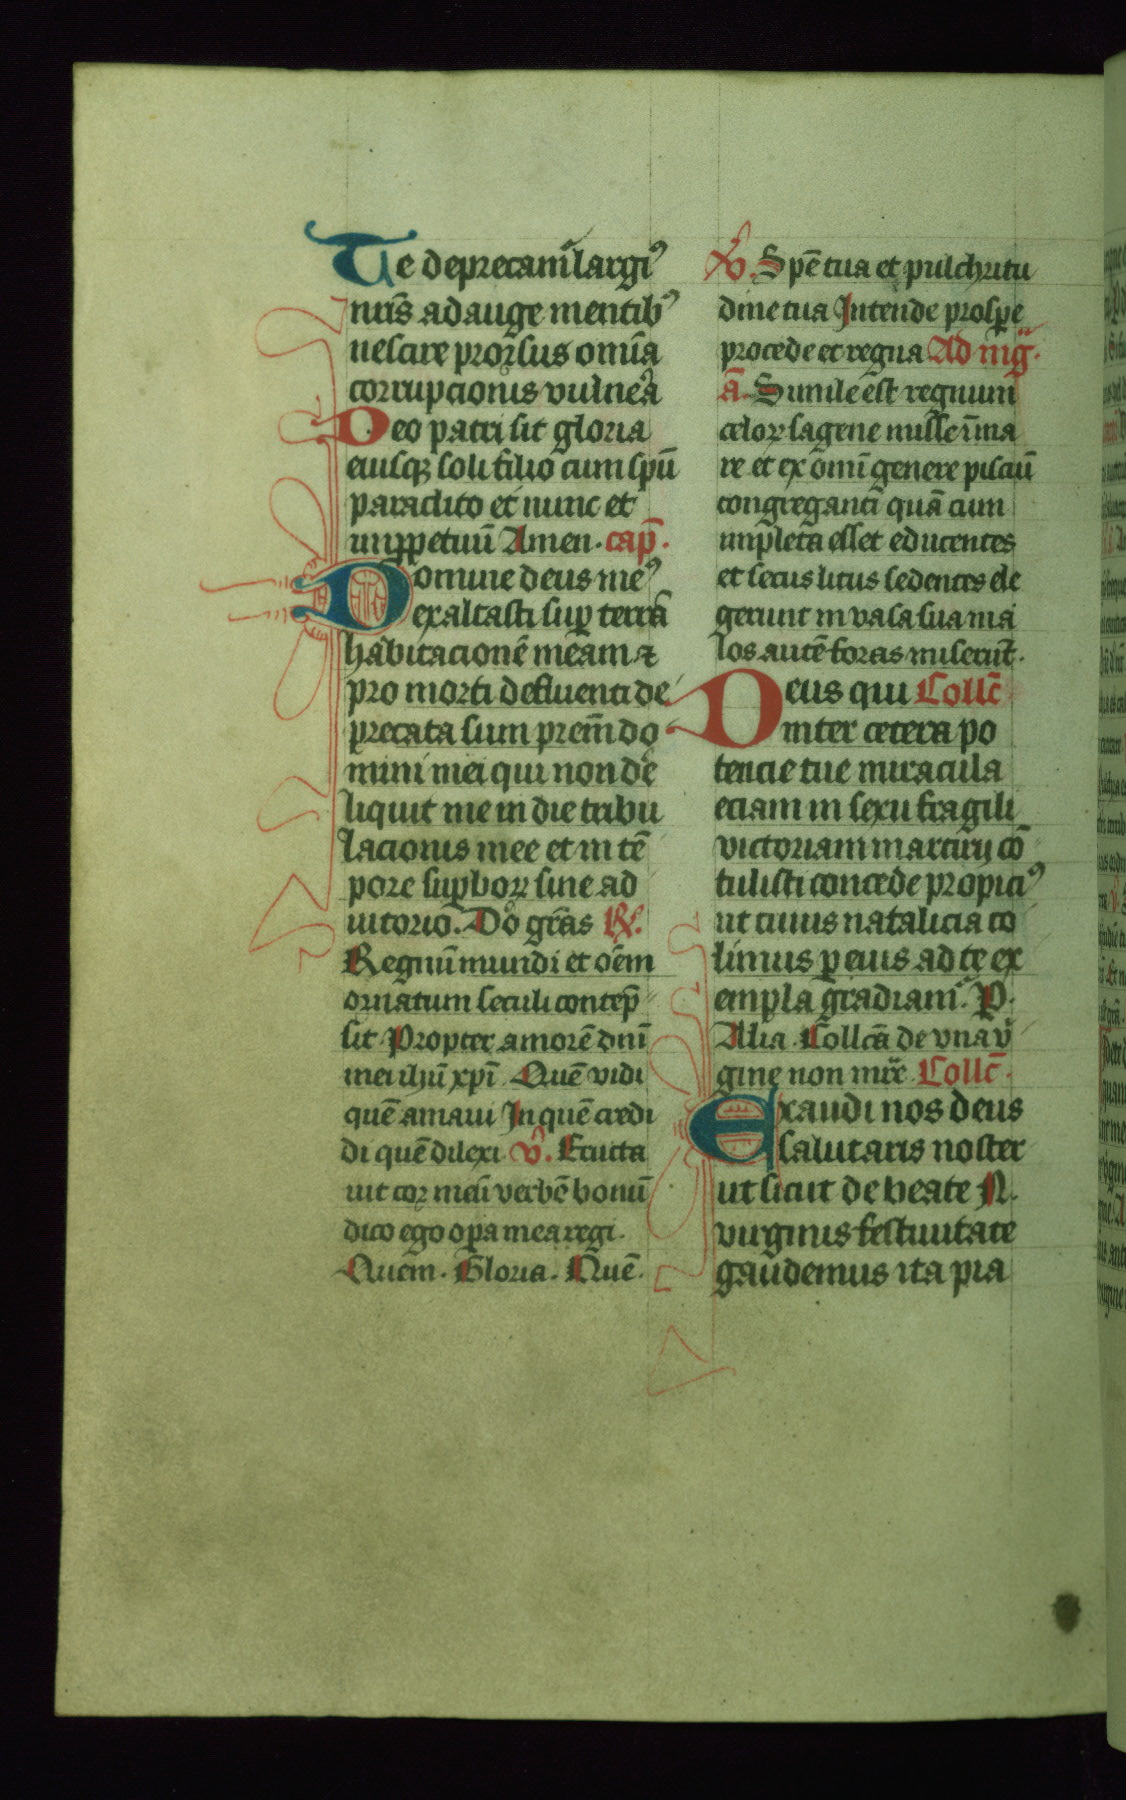 Te deprecam᷑ largi᷒
nr̄is adauge mentib᷒
nescire prorsus om̄ia
corrupcionis vulnera
Deo patri sit gloria
eiusqꝫ soli filio cum sp̄u
paraclito et nunc et
in ꝑpetuū Amen. cap̄.
Domine deus me᷒
exaltasti suꝑ terrā
habitacionē meam ⁊
pro morti defluenti de
precata sum prem̄ do
mini mei qui non de
liquit me in die tribu
lacionis mee et in tē
pore suꝑboꝝ sine ad
iutorio. Do gr̄as R̸.
Regnū mundi et oēm
ornatum seculi contēp
sit Propter amorē dn̄i
mei ihū xp̄i Quē vidi
quē amaui In quē credi
di quē dilexi. v̄. Eructa
uit cor meū verbū bonū
dico ego oꝑa mea regi.
Quem. Gloria. Quē.
V̄. Spē tua et pulchritu
dine tua Intende prosꝑe
procede et regna Ad mg̅.
ā. Simile est regnum
celoꝝ sagene misse ī ma
re et ex om̄i genere pisciū
congreganti quā cum
impleta esset educentes
et secus litus sedentes ele
gerunt in vasa sua ma
los autē foras miserūt.
Deus qui Collc̄
inter cetera po
tencie tue miracula
eciam in sexu fragili
victoriam martirij cō
tulisti concede propici᷒
ut cuius natalicia co
limus ꝑ eius ad te ex
empla gradiam᷑. P.
Alia Collcā de vna v̄
gine non mr̄e. Collc̄.
Exaudi nos deus
salutaris noster
ut sicut de beate N.
virginis festiuitate
gaudemus ita pia